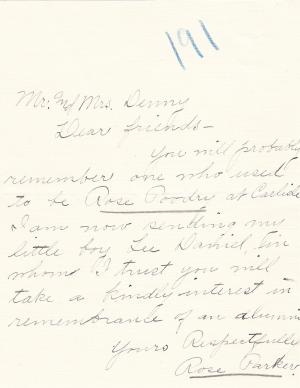 191
Mr. and Mrs. Denny
Dear friends—
You will probably
remember one who used
to be Rose Poodry at Carlisle
I am now sending my
little boy Lee Daniel, in
whom I trust you will
take a kindly interest in
remembrance of an alumni
Yours Respectfully
Rose Parker.